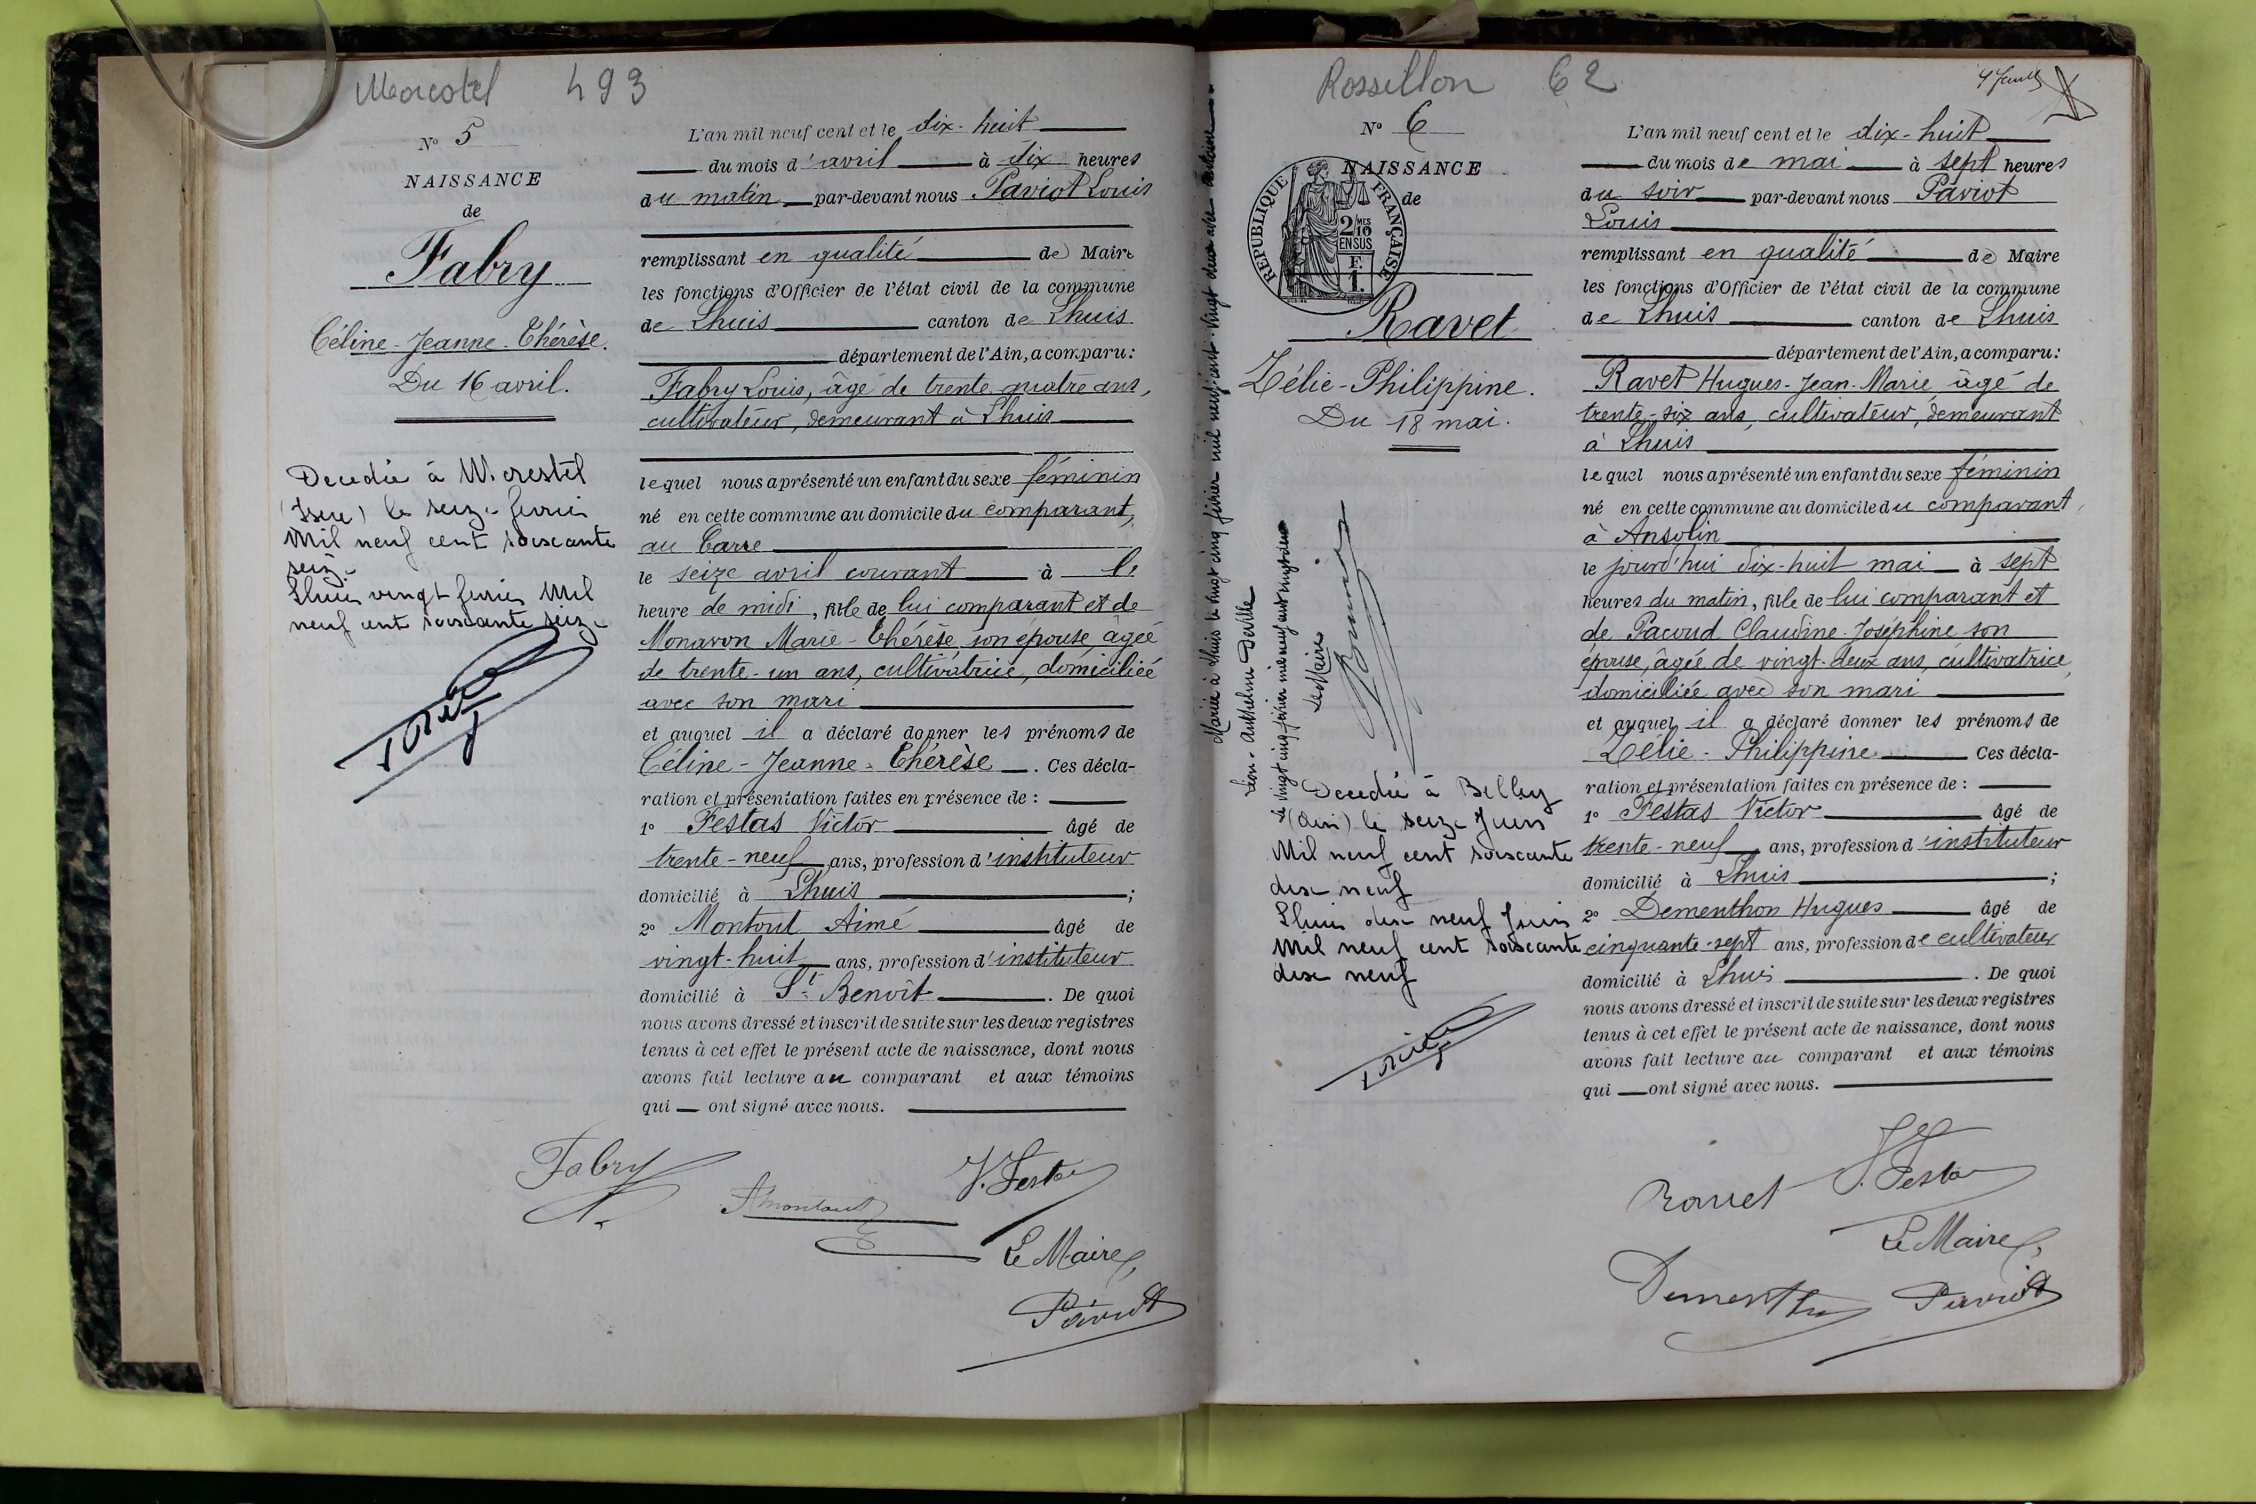 Morestel 493
N° 5
NAISSANCE
de
Fabry
Céline-Jeanne-Thérèse.
Du 16 avril.
Decedée à Morestel
(Isère) le seize fevrier
Mil neuf cent soixante
seize
Lhuis vingt fevrier Mil
neuf cent soixante seize
L'an mil neuf cent et le dix-huit
du mois d'avril à dix heures
du matin par-devant nous Paviot Louis
remplissant en qualité de Maire
les fonctions d'Officier de l'état civil de la commune
de Lhuis canton de Lhuis
département de l'Ain, a comparu:
Fabry Louis, âgé de trente-quatre ans,
cultivateur, demeurant à Lhuis
lequel nous a présenté un enfant du sexe féminin
né en cette commune au domicile du comparant,
au
le seize avril courant à
heure de midi, fille de lui comparant et de
Monavon Marie-Thérèse son épouse âgée
de trente-un ans, cultivatrice, domiciliée
avec son mari
et auquel il a déclaré donner les prénoms de
Céline-Jeanne-Thérèse. Ces décla-
ration et présentation faites en présence de :
1° Festas Victor âgé de
trente-neuf ans, profession d'instituteur
domicilié à Lhuis ;
2° Montout Aimé âgé de
vingt-huit ans, profession d'instituteur
domicilié à St Benoit. De quoi
nous avons dressé et inscrit de suite sur les deux registres
tenus à cet effet le présent acte de naissance, dont nous
avons fait lecture au comparant et aux témoins
qui ont signé avec nous.
Fabry
V. Festas
A Montout
Le Maire,
Paviot
Rossillon 62
N° 6
NAISSANCE
de
RÉPUBLIQUE FRANÇAISE
2 MES
10
EN SUS
F.
1.
Ravet
Zélie-Philippine.
Du 18 mai.
Mariée à Lhuis le vingt cinq février mil neuf cent vingt deux avec Antoine
Léon-Anthelme Deville
le vingt cinq février mil neuf cent vingt deux
Le Maire
Decedée à Belley
(Ain) le seize Juin
Mil neuf cent soixante
dix neuf
Lhuis dix neuf Juin
Mil neuf cent soixante
dix neuf
L'an mil neuf cent et le dix-huit
du mois de mai à sept heures
du soir par-devant nous Paviot
Louis
remplissant en qualité de Maire
les fonctions d'Officier de l'état civil de la commune
de Lhuis canton de Lhuis
département de l'Ain, a comparu:
Ravet Hugues-Jean-Marie, âgé de
trente-six ans, cultivateur, demeurant
à Lhuis
lequel nous a présenté un enfant du sexe féminin
né en cette commune au domicile du comparant,
à Ansolin
le jourd'hui dix-huit mai à sept
heures du matin, fille de lui comparant et
de Pacoud Claudine-Joséphine son
épouse, âgée de vingt-deux ans, cultivatrice,
domiciliée avec son mari
et auquel il a déclaré donner les prénoms de
Zélie-Philippine Ces décla-
ration et présentation faites en présence de :
1° Festas Victor âgé de
trente-neuf ans, profession d'instituteur
domicilié à Lhuis ;
2° Dementhon Hugues âgé de
cinquante-sept ans, profession de cultivateur
domicilié à Lhuis. De quoi
nous avons dressé et inscrit de suite sur les deux registres
tenus à cet effet le présent acte de naissance, dont nous
avons fait lecture au comparant et aux témoins
qui ont signé avec nous.
Ravet
V. Festas
Le Maire,
Dementhon
Paviot